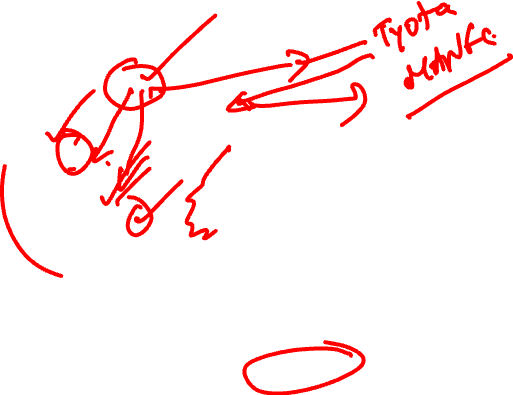 Tyota
MANFC.